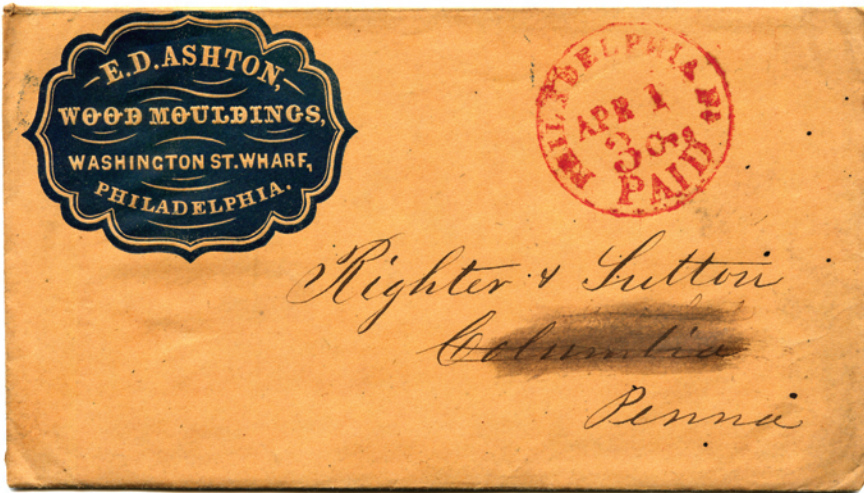 E.D. ASHTON,
WOOD MOULDINGS,
WASHINGTON ST. WHARF,
PHILADELPHIA.
PHILADELPHIA Pa
APR 1
3 Cts
PAID
Righter & Sutton
Columbia
Penna